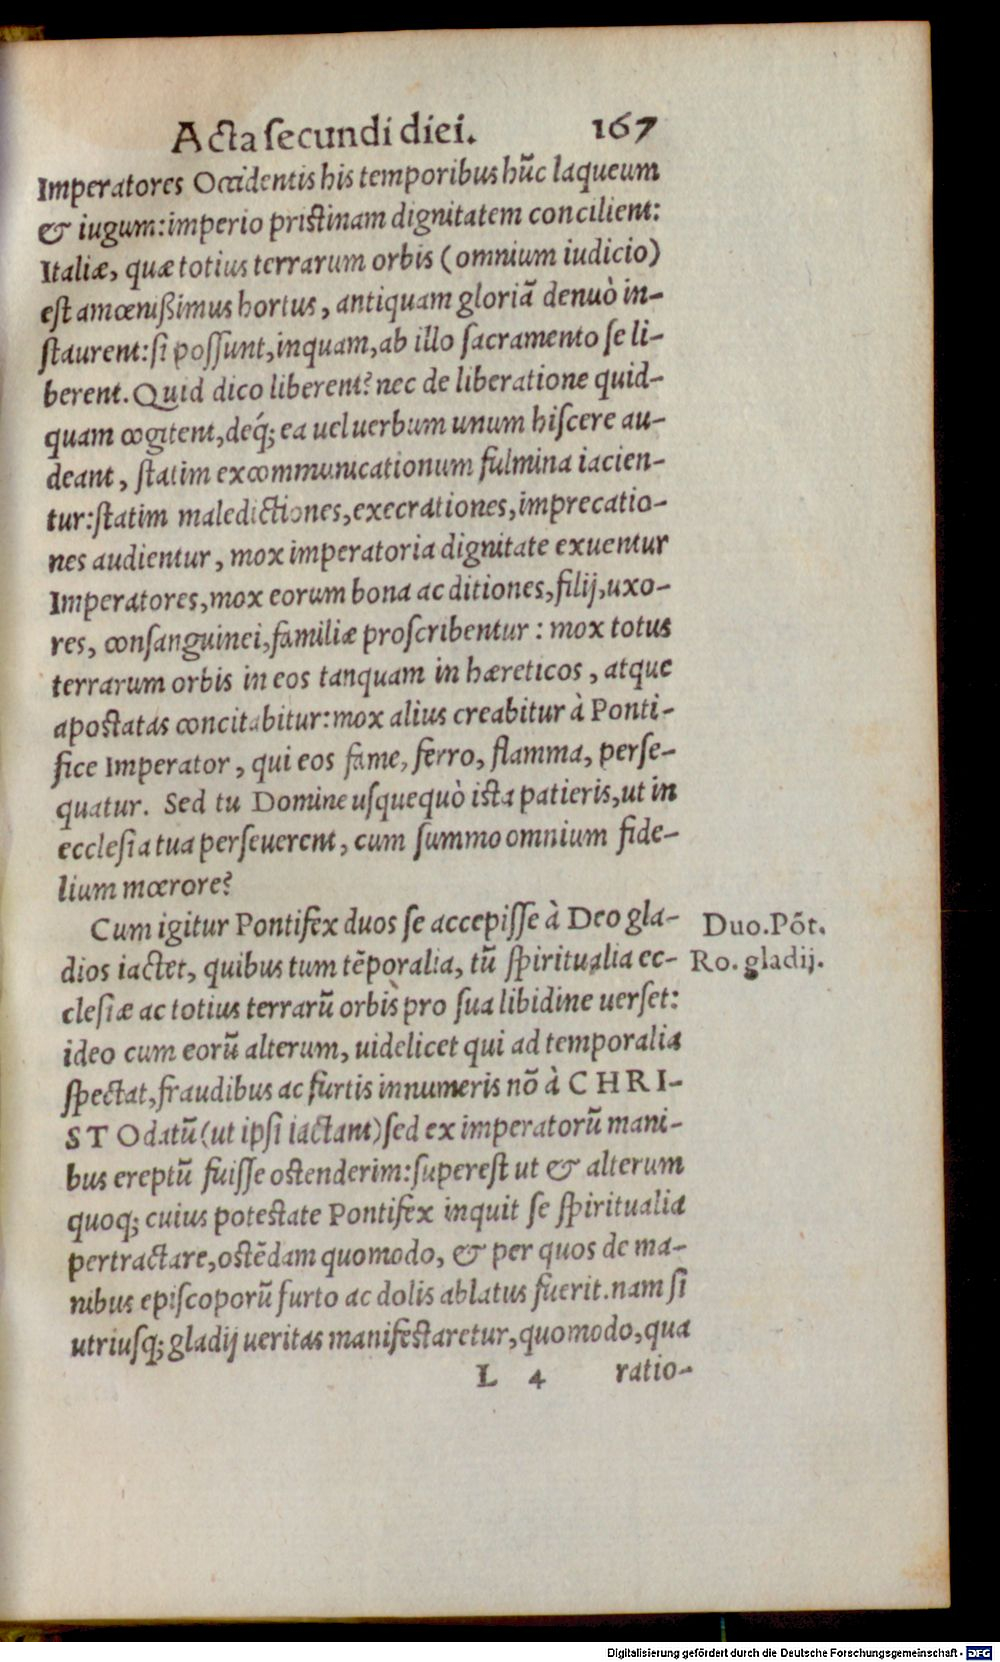 Acta ſecundi diei. 167
Imperatores Occidentis his temporibus hũc laqueum
& iugum: imperio priſtinam dignitatem concilient:
Italiæ, quæ totius terrarum orbis (omnium iudicio)
eſt amœnißimus hortus, antiquam gloriã denuò in-
ſtaurent: ſi poſſunt, inquam, ab illo ſacramento ſe li-
berent. Quid dico liberent? nec de liberatione quid-
quam cogitent, deq́; ea uel uerbum unum hiſcere au-
deant, ſtatim excommunicationum fulmina iacien-
tur: ſtatim maledictiones, execrationes, imprecatio-
nes audientur, mox imperatoria dignitate exuentur
Imperatores, mox eorum bona ac ditiones, filij, uxo-
res, conſanguinei, familiæ proſcribentur: mox totus
terrarum orbis in eos tanquam in hæreticos, atque
apoſtatas concitabitur: mox alius creabitur à Ponti-
fice Imperator, qui eos fame, ferro, flamma, perſe-
quatur. Sed tu Domine uſquequò iſta patieris, ut in
eccleſia tua perſeuerent, cum ſummo omnium fide-
lium mœrore?
Cum igitur Pontifex duos ſe accepiſſe à Deo gla-
dios iactet, quibus tum tẽporalia, tũ ſpiritualia ec-
cleſiæ ac totius terrarũ orbis pro ſua libidine uerſet:
ideo cum eorũ alterum, uidelicet qui ad temporalia
ſpectat, fraudibus ac furtis innumeris nõ à CHRI-
STO datũ (ut ipſi iactant) ſed ex imperatorũ mani-
bus ereptũ fuiſſe oſtenderim: ſupereſt ut & alterum
quoq; cuius poteſtate Pontifex inquit ſe ſpiritualia
pertractare, oſtẽdam quomodo, & per quos de ma-
nibus epiſcoporũ furto ac dolis ablatus fuerit. nam ſi
utriuſq; gladij ueritas manifeſtaretur, quomodo, qua
L 4 ratio-
Duo. Põt.
Ro. gladij.
Digitalisierung gefördert durch die Deutsche Forschungsgemeinschaft - DFG